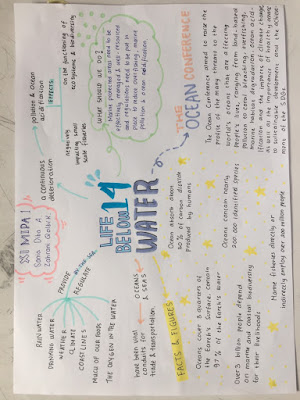 XI MIPA 1
LIFE
BELOW
14
WATER
PROVIDE
&
REGULATE
RAINWATER
DRINKING WATER
WEATHER
CLIMATE
COASTLINES
MUCH OF OUR FOOD
THE OXYGEN IN THE WATER
OCEANS
& SEAS
have been vital
conduits for
trade & transportation
A CONTINUOUS
deterioration
pollution & ocean
acidification
EFFECTS:
on the functioning of
ecosystems & biodiversity
negatively
impacting small
scale fisheries
WHAT SHOULD WE DO?
Marine protected areas need to be
effectively managed & well-resourced
and regulations need to be put in
place to reduce overfishing, marine
pollution & ocean acidification
THE
OCEAN CONFERENCE
The Ocean Conference aimed to raise the
profile of the many threats to the
world's ocean that are affecting
people's lives, ranging from land-based
as well as the importance of healthy oceans
to sustainable development and the achieve
many of the SDGs.
FACTS & FIGURES
Oceans cover 3 quarters of
the Earth's surface, contain
97% of the Earth's water
Over 3 billion people depend
on marine and coastal biodiversity
for their livelihoods
Ocean absorb about
30% of carbon dioxide
produced by humans
Oceans contain nearly
200.000 identified species
Marine fisheries directly or
indirectly employ over 200 million people